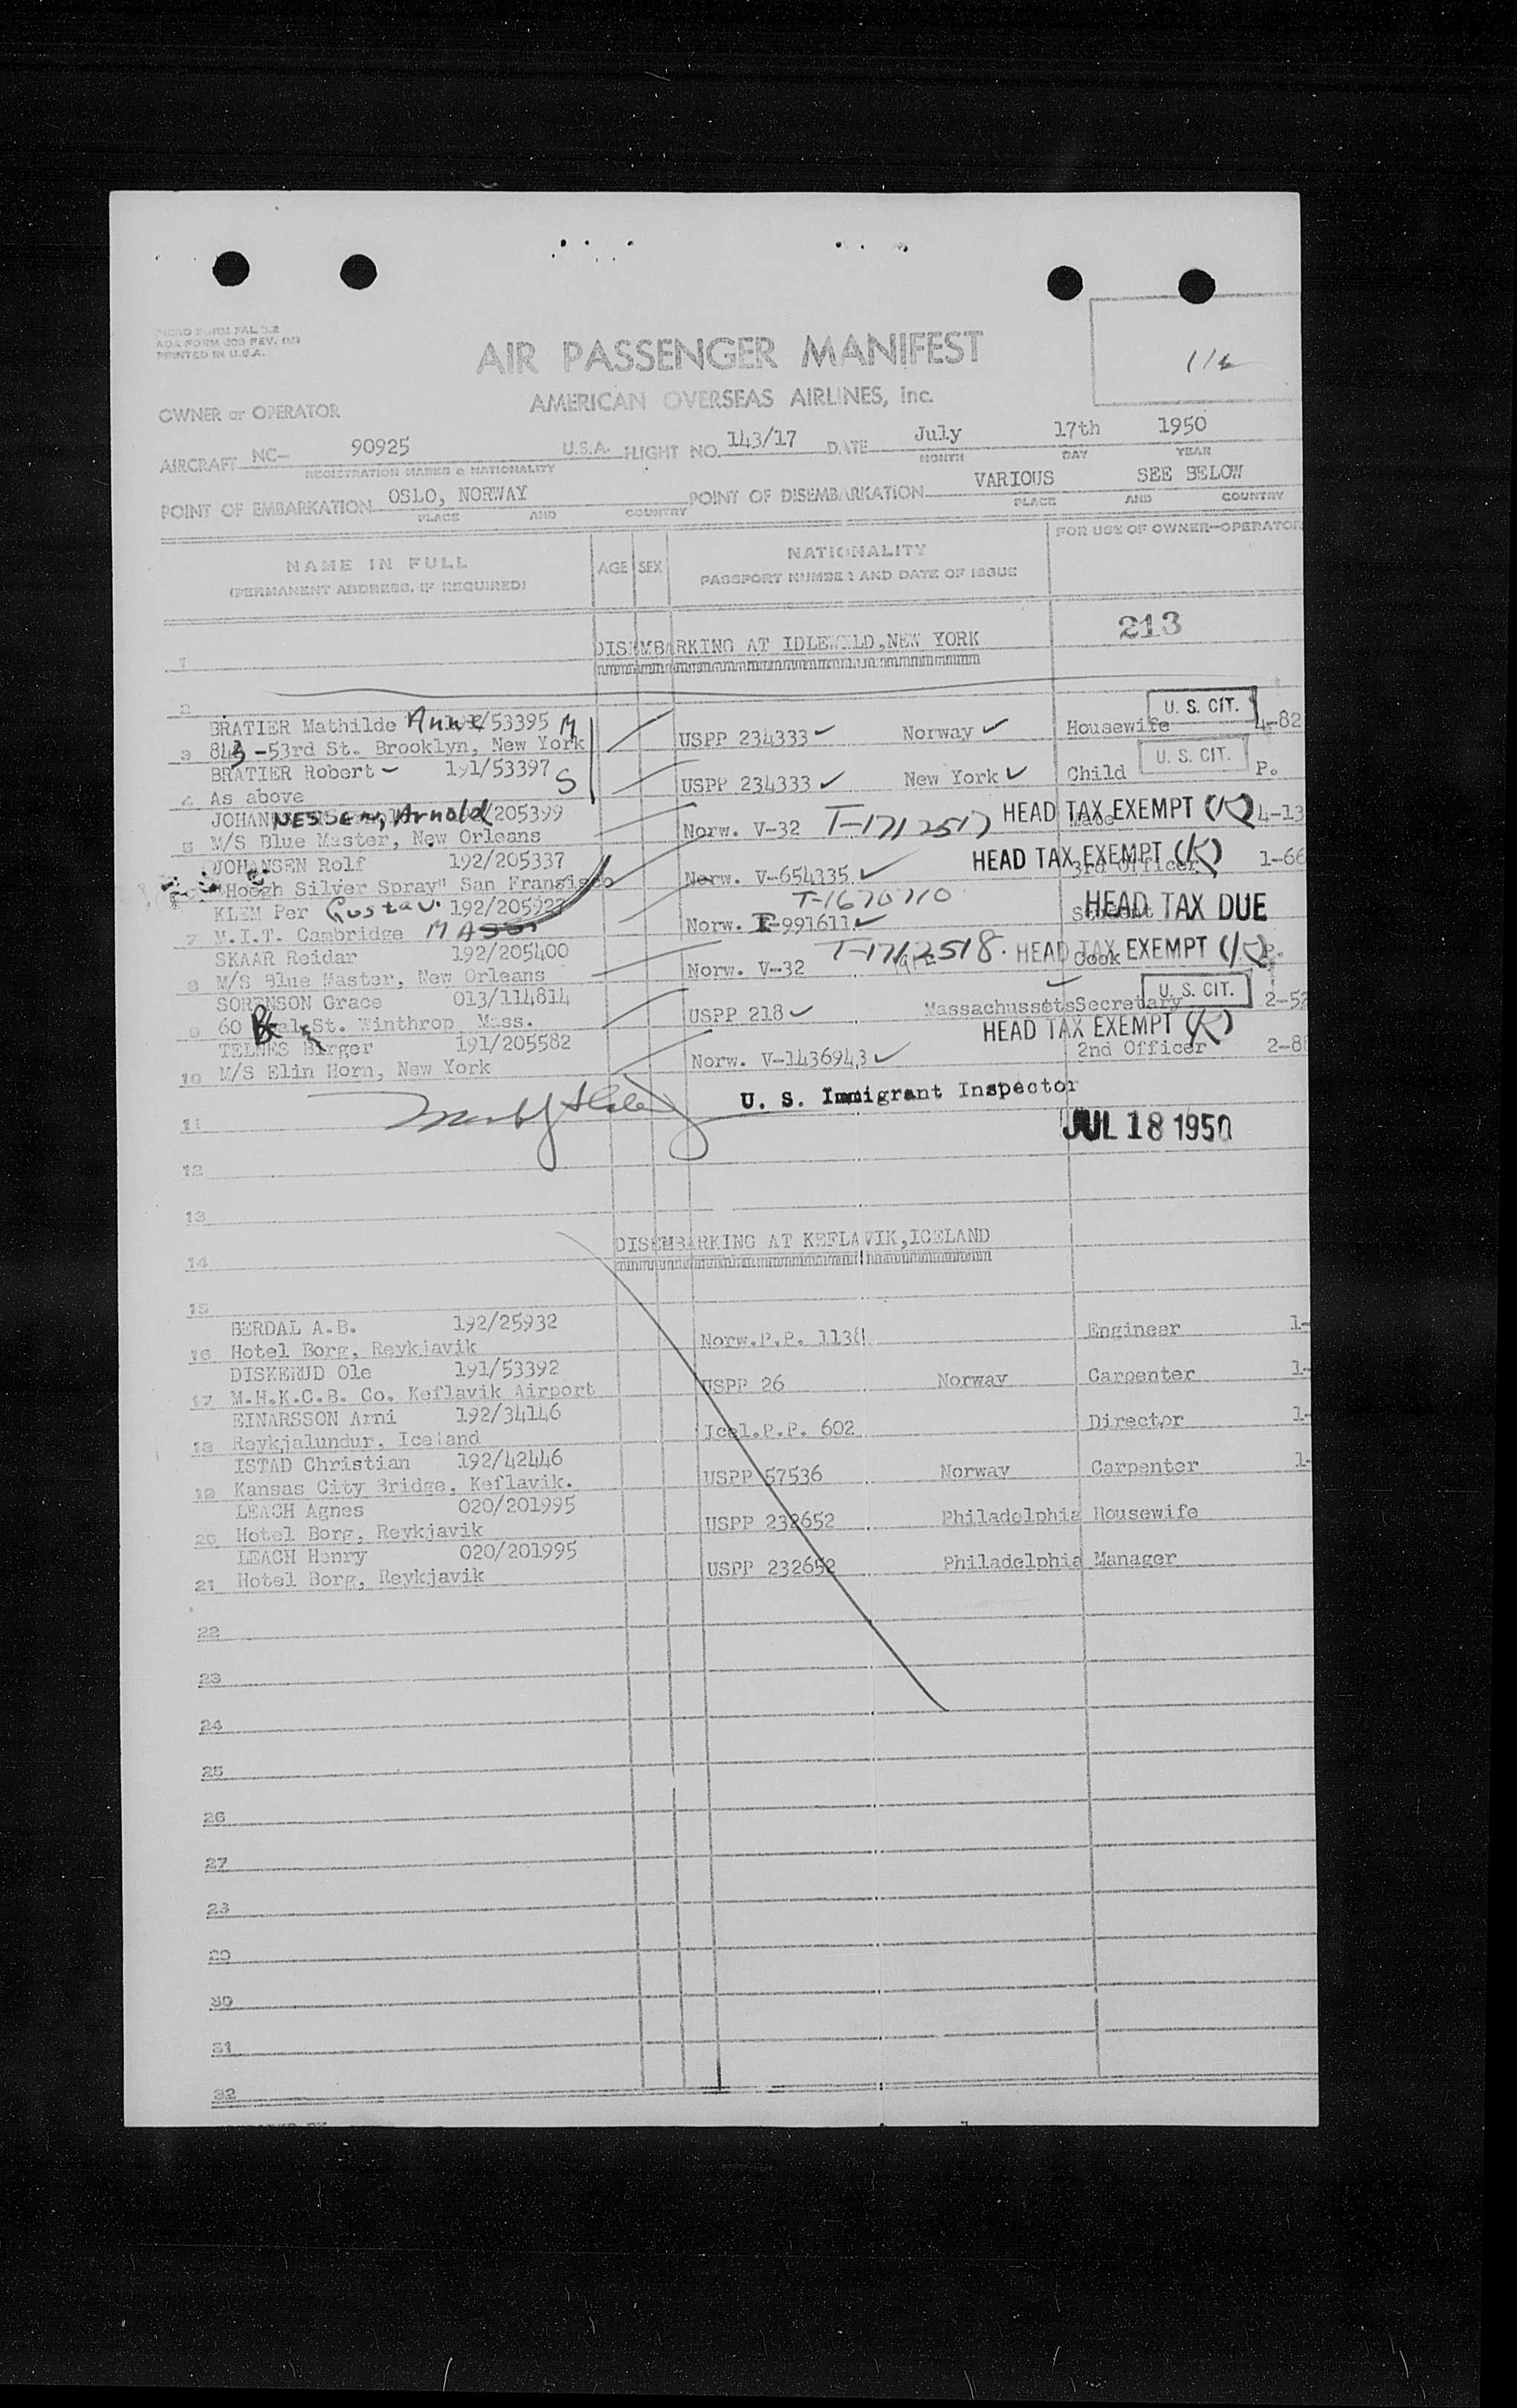 ADA FORM 303 REV.
PRINTED IN U.S.A.
AIR PASSENGER MANIFEST
AMERICAN OVERSEAS AIRLINES, Inc.
OWNER or OPERATOR
AIRCRAFT NC- 90925 U.S.A. FLIGHT NO. 143/17 DATE July 17th 1950
REGISTRATION MARKS & NATIONALITY MONTH DAY YEAR
POINT OF EMBARKATION OSLO, NORWAY POINT OF DISEMBARKATION VARIOUS SEE BELOW
PLACE AND COUNTRY PLACE AND COUNTRY
NAME IN FULL AGE SEX NATIONALITY FOR USE OF OWNER-OPERATOR
(PERMANENT ADDRESS, IF REQUIRED) PASSPORT NUMBER AND DATE OF ISSUE
213
1 DISEMBARKING AT IDLEWILD, NEW YORK
2
BRATIER Mathilde Anne 191/53395 M U. S. CIT.
3 843 -53rd St. Brooklyn, New York USPP 234333 Norway Housewife 4-82
BRATIER Robert 191/53397 S U. S. CIT.
4 As above USPP 234333 New York Child P.
JOHANNESSEN, Arnold /205399 HEAD TAX EXEMPT (K)
5 M/S Blue Master, New Orleans Norw. V-32 T-1712517 4-13
JOHANSEN Rolf 192/205337 HEAD TAX EXEMPT (K)
"Hoegh Silver Spray" San Fransisco Norw. V-654335 3rd Officer 1-66
KLEM Per Gustav. 192/205927 T-1670710 HEAD TAX DUE
7 M.I.T. Cambridge MASS. Norw. 991611 Student
SKAAR Reidar 192/205400 T-1712518. HEAD TAX EXEMPT (K)
8 M/S Blue Master, New Orleans Norw. V-32 Cook P.
SORENSON Grace 013/114814 U. S. CIT.
9 60 St. Winthrop Mass. USPP 218 Massachussets Secretary 2-52
TELNES Birger 191/205582 HEAD TAX EXEMPT (K)
10 M/S Elin Horn, New York Norw. V-1436943 2nd Officer 2-8
11 U. S. Immigrant Inspector
JUL 18 1950
12
13
14 DISEMBARKING AT KEFLAVIK, ICELAND
15
BERDAL A.B. 192/25932
16 Hotel Borg, Reykjavik Norw.P.P. 1138 Engineer 1-
DISKERUD Ole 191/53392
17 M.H.K.C.B. Co. Keflavik Airport USPP 26 Norway Carpenter 1-
EINARSSON Arni 192/34146
18 Reykjalundur, Iceland Icel.P.P. 602 Director 1-
ISTAD Christian 192/42446
19 Kansas City Bridge, Keflavik. USPP 57536 Norway Carpenter 1-
LEACH Agnes 020/201995
20 Hotel Borg, Reykjavik USPP 232652 Philadelphia Housewife
LEACH Henry 020/201995
21 Hotel Borg, Reykjavik USPP 232652 Philadelphia Manager
22
23
24
25
26
27
28
29
30
31
32